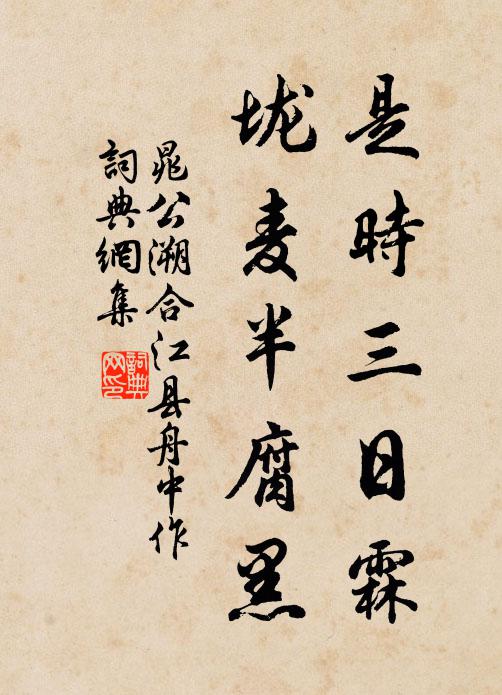 是時三日霖
垅麦半腐黑
晁公溯合江县舟中作
詞典網集
詞典网印